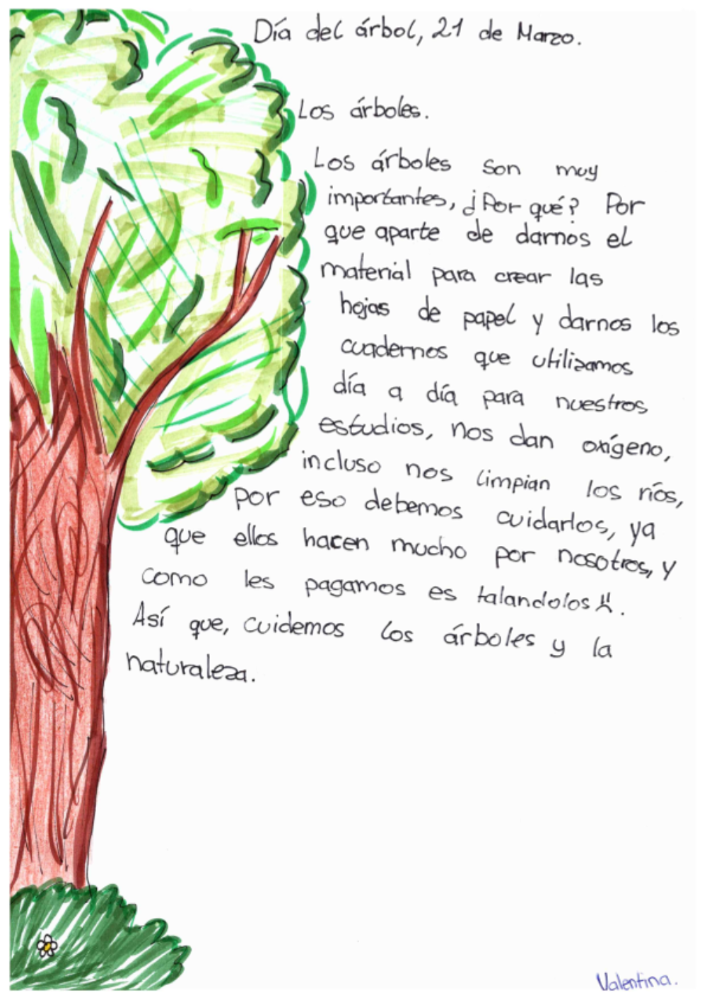 Día del árbol, 21 de Marzo.
Los árboles.
Los árboles son muy
importantes, ¿Por qué? Por
que aparte de darnos el
material para crear las
hojas de papel y darnos los
cuadernos que utilizamos
día a día para nuestros
estudios, nos dan oxígeno,
incluso nos limpian los ríos,
por eso debemos cuidarlos, ya
que ellos hacen mucho por nosotros, y
como les pagamos es talandolos
Así que, cuidemos los árboles y la
naturaleza.
Valentina.